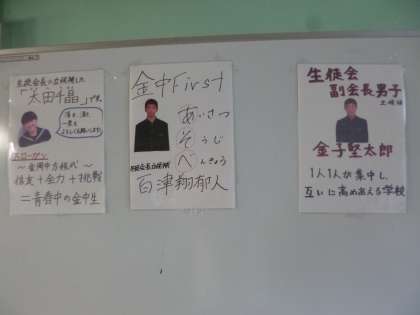 生徒会長に立候補した
「太田千晶」です。
清き一票を
よろしくお願いします!
スローガン
～金岡中方程式～
信友+全力+挑戦
=青春中の金中生
金中First
あいさつ
そうじ
べんきょう
生徒会長立候補
百津翔郁人
生徒会
副会長男子
立候補
金子堅太郎
1人1人が集中し
互いに高めあえる学校